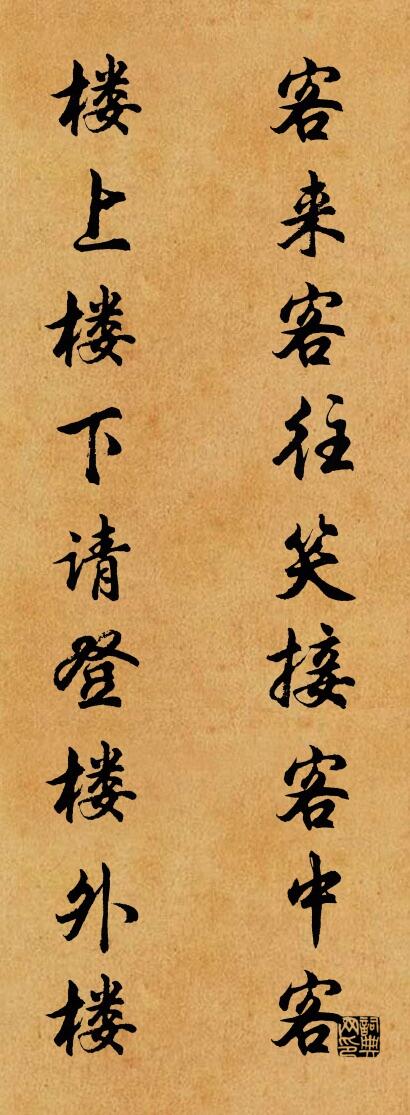 客来客往笑接客中客
楼上楼下请登楼外楼
詞典网印